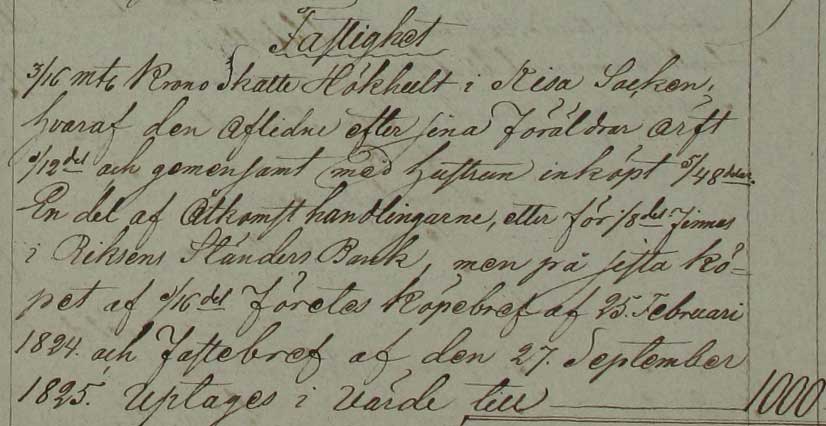 Fastighet
3/16 mtl Krono Skatte Hökhult i Kisa Socken,
hvaraf den aflidne efter sina Föräldrar ärft
1/12 del och gemensamt med hustrun inköpt 5/48 delar.
En del af Åtkomsthandlingarne, eller för 1/8 del finnes
i Riksens Ständers Bank, men på sista kö-
pet af 1/16 del företes Köpebref af 25. Februari
1824. och Fastebref af den 27. September
1825. Uptages i värde till 1000.